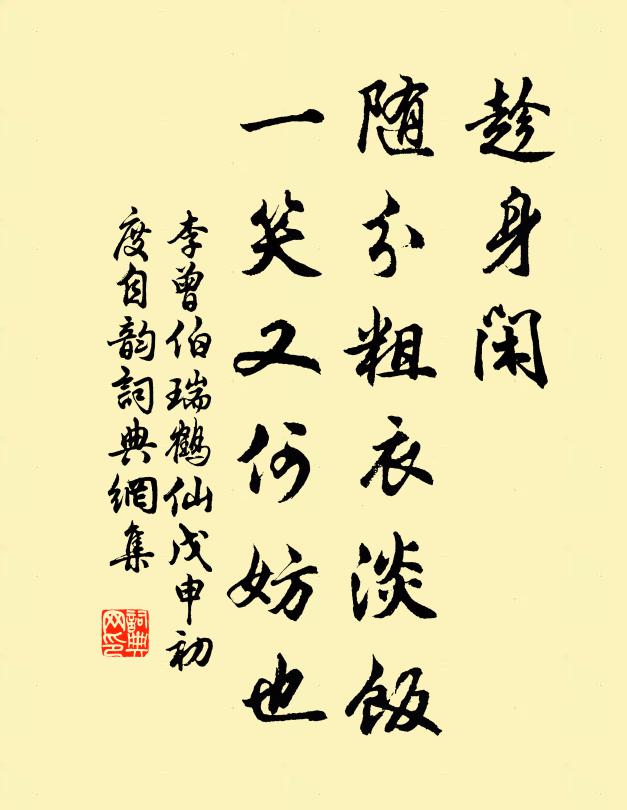 趁身闲
随分粗衣淡饭
一笑又何妨也
李曾伯瑞鹤仙戊申初
度自韵詞典網集
詞典網印